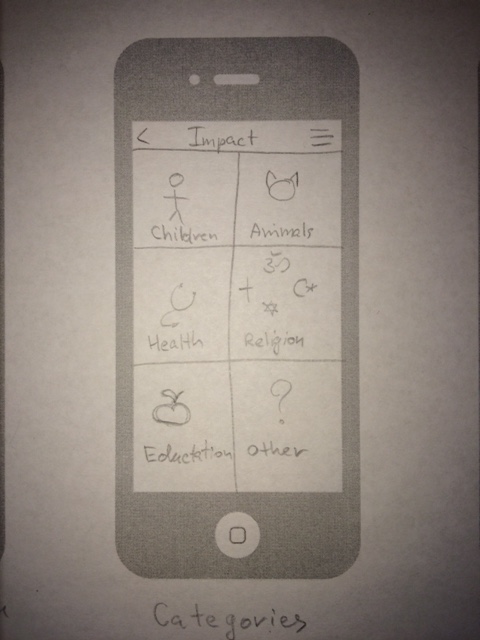 Impact
Children Animals
Health Religion
?
Eductation Other
Categories